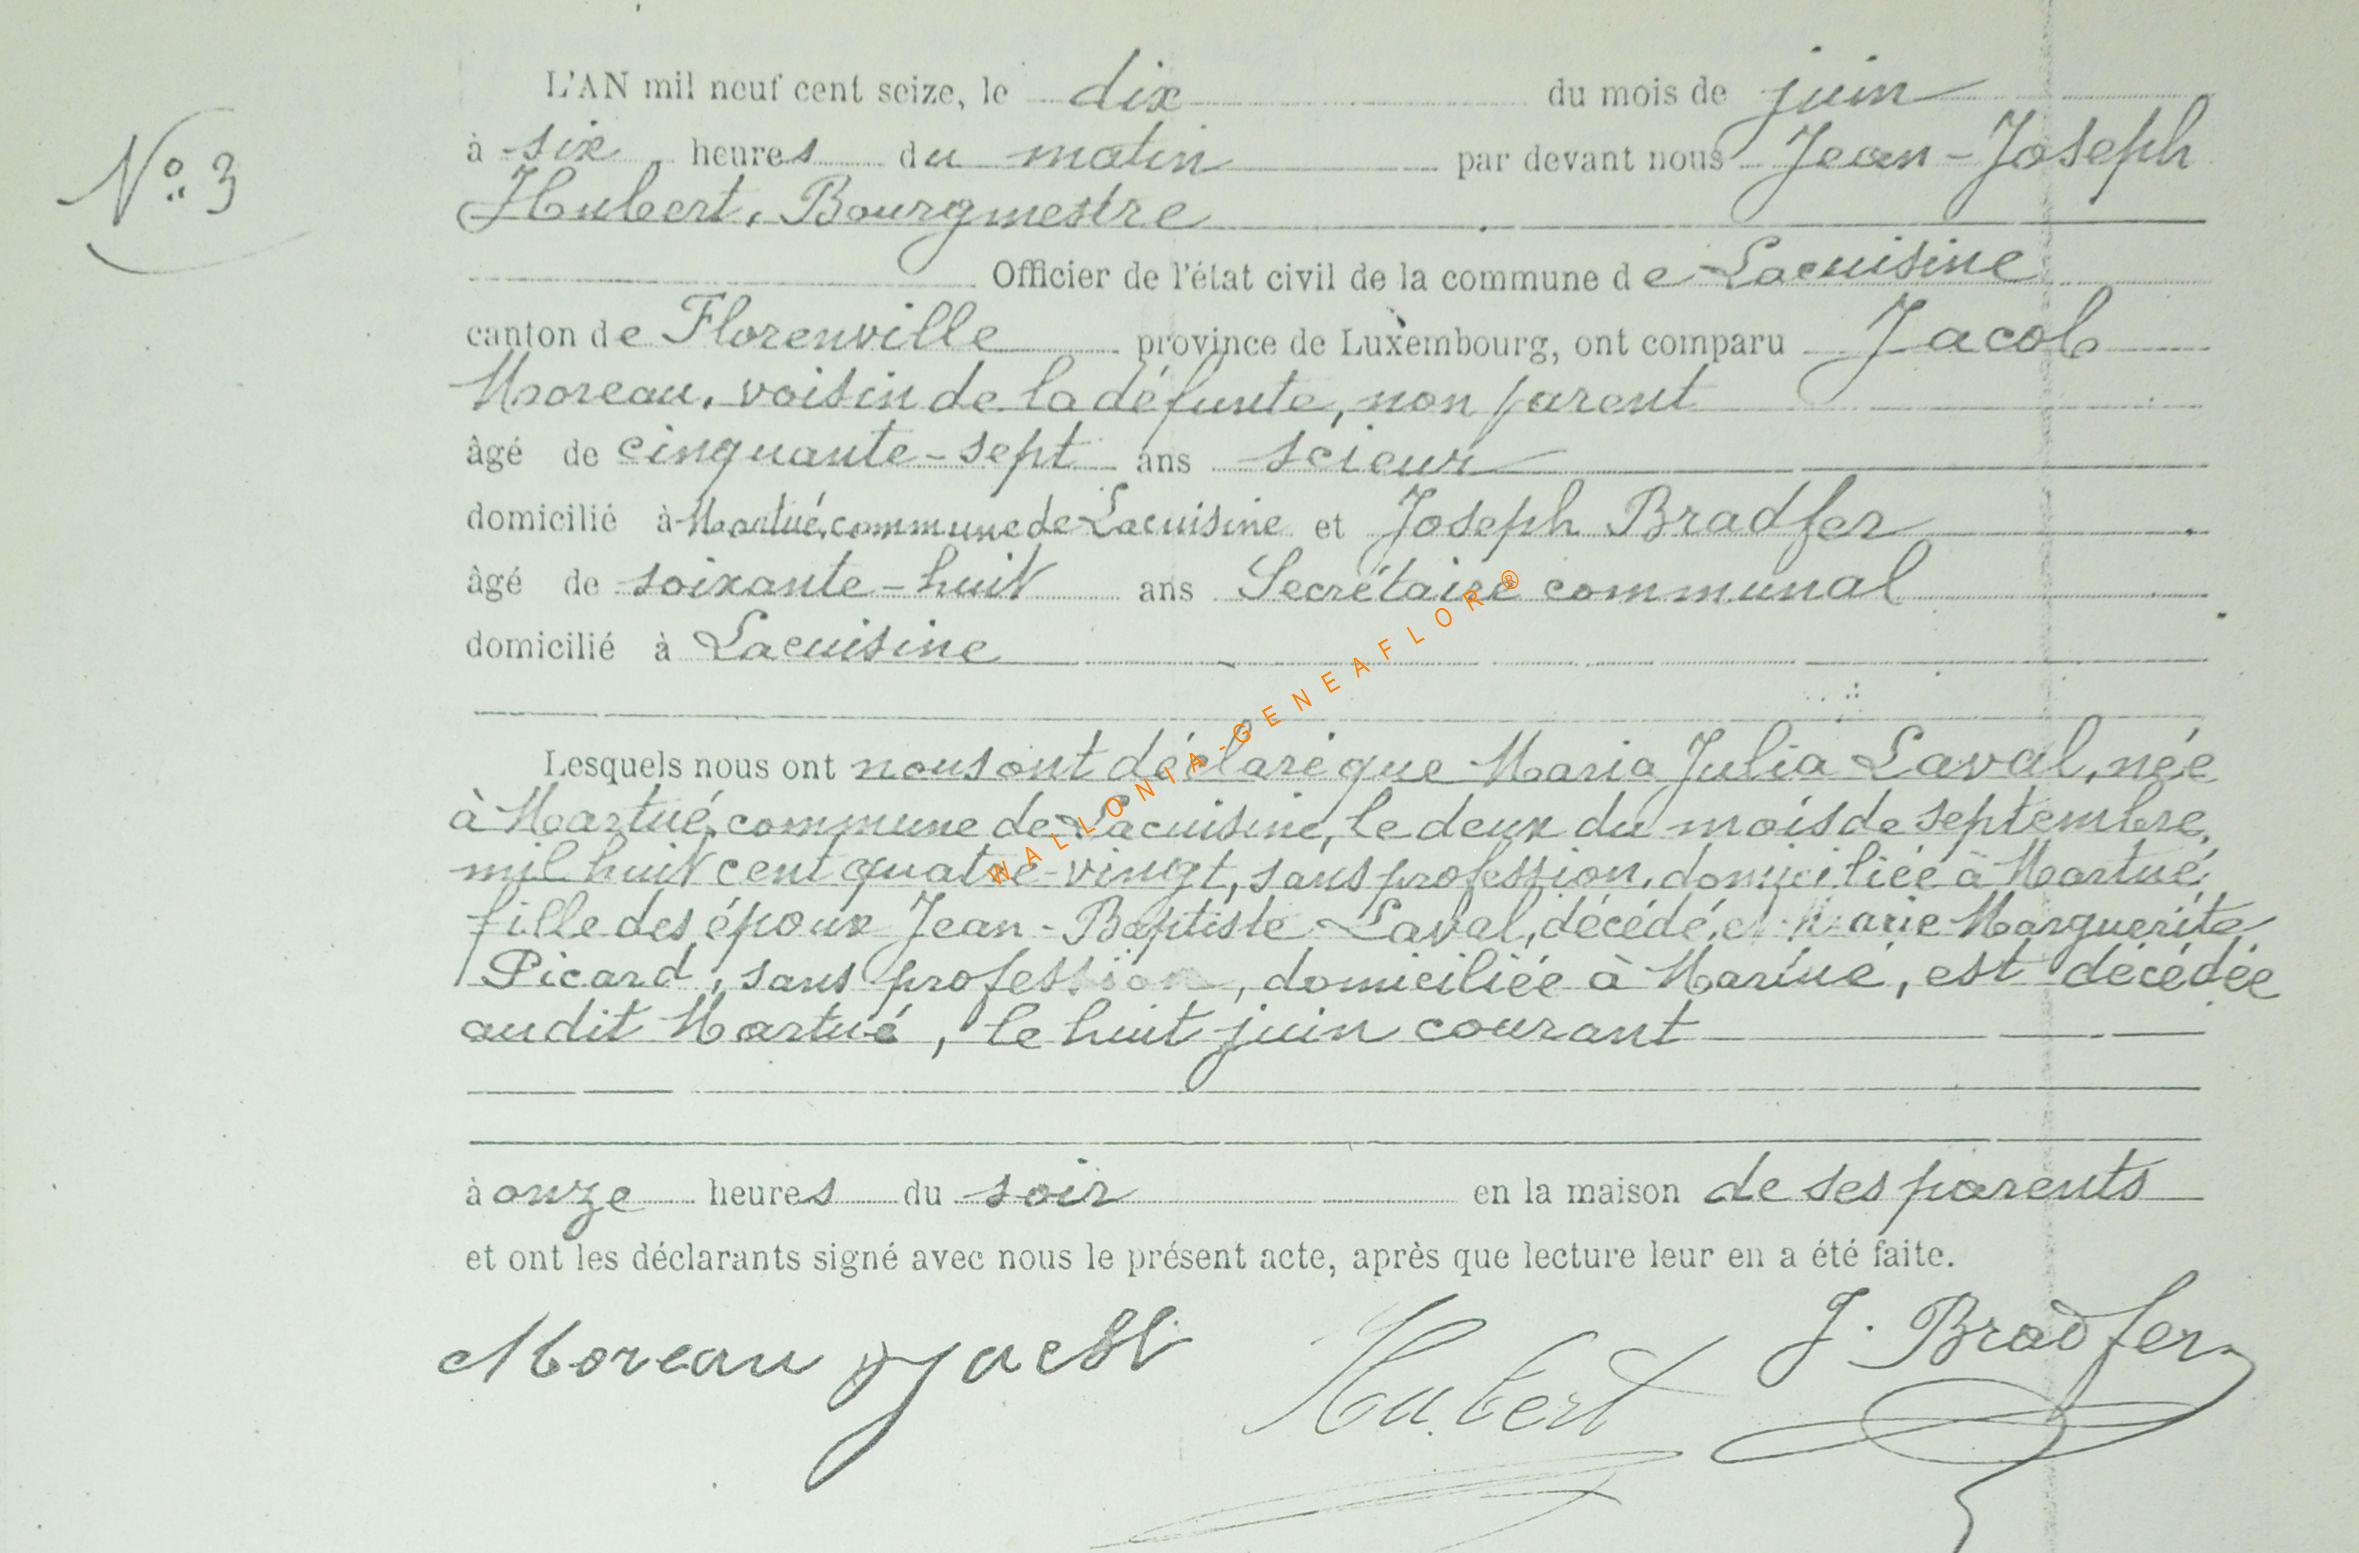 L'AN mil neuf cent seize, le dix du mois de juin
N° 3
à six heures du matin par devant nous Jean-Joseph
Hubert, Bourgmestre
Officier de l'état civil de la commune de Lacuisine
canton de Florenville province de Luxembourg, ont comparu Jacob
Moreau, voisin de la défunte, non parent
âgé de cinquante-sept ans scieur
domicilié à Martué, commune de Lacuisine et Joseph Bradfer
âgé de soixante-huit ans Secrétaire communal
domicilié à Lacuisine
Lesquels nous ont nous ont déclaré que Maria Julia Laval, née
à Martué, commune de Lacuisine, le deux du mois de septembre,
mil huit cent quatre-vingt, sans profession, domiciliée à Martué,
fille des époux Jean-Baptiste Laval, décédé, et Marie Marguerite
Picard, sans profession, domiciliée à Martué, est décédée
audit Martué, le huit juin courant
à onze heures du soir en la maison de ses parents
et ont les déclarants signé avec nous le présent acte, après que lecture leur en a été faite.
Moreau Jacob Hubert J. Bradfer
WALLONIA-GENEAFLOR®